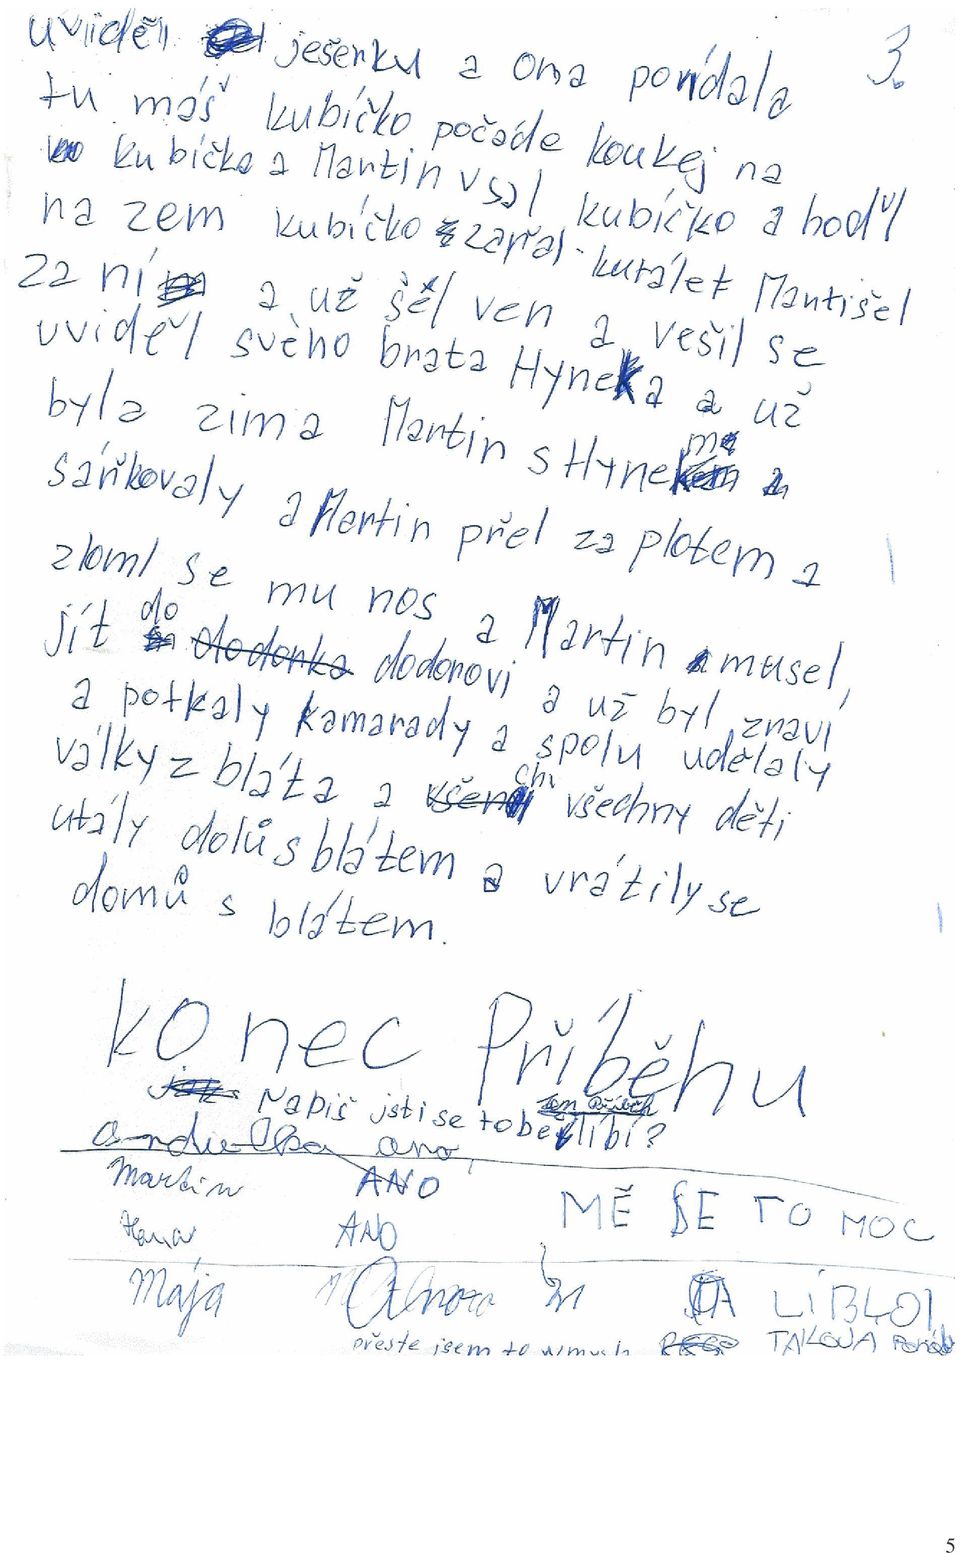 uviděl ješenku a ona povídala 3.
tu máš kubíčko počáde koukej na
kubíčko a Martin vsal kubíčko a hodyl
na zem kubíčko začal kutálet Martišel
za ní a už šel ven a vešil se
uviděl svého brata Hyneka a už
byla zima Martin s Hynekem
sáňkovaly a Martin přel za plotem a
zloml se mu nos a Martin musel
jít do dodonovi a už byl zraví
a potkaly kamarady a spolu udělaly
války z bláta a všechny děti
utály dolů s blátem a vrátily se
domů s blátem.
Konec Příběhu
Napiš jsti se tobě líbí?
ten příběh
ano
Martin ANO
Hana ANO
MĚ SE TO MOC
Mája
LÍBLOI
přeste jsem to
TAKOVA
5